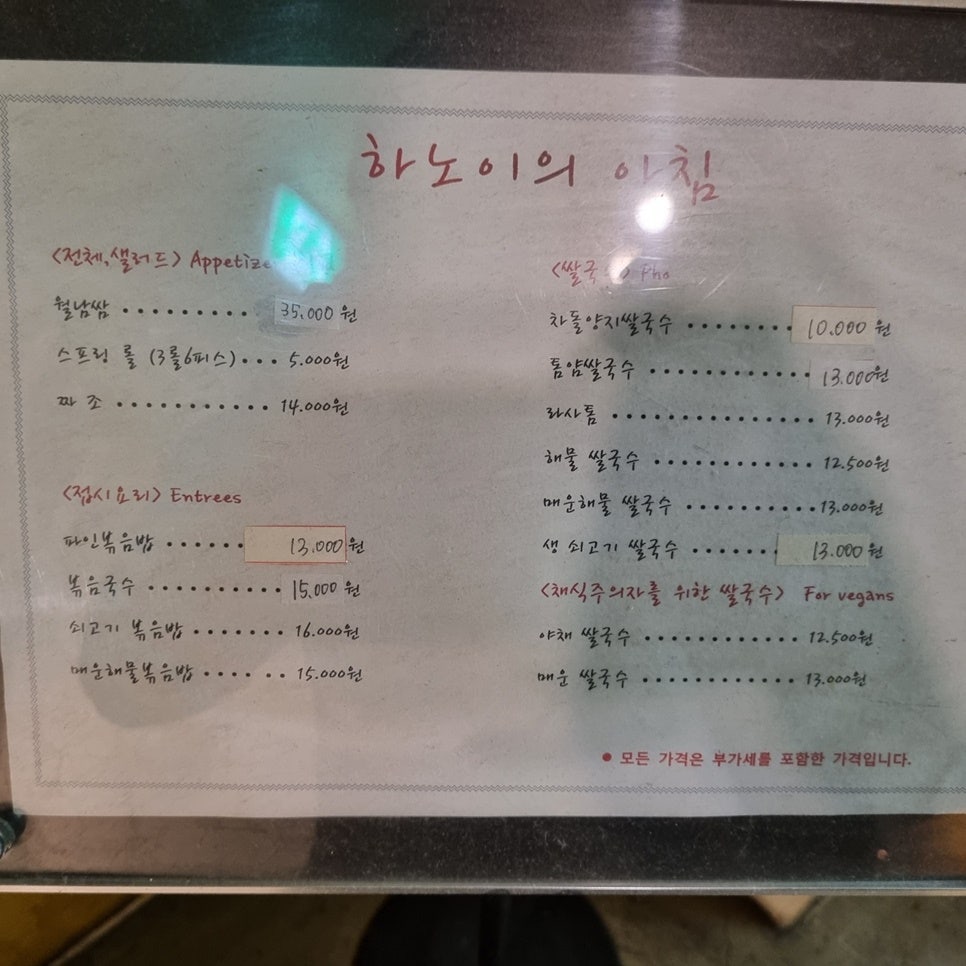 하노이의 아침
<전체,샐러드> Appetize
월남쌈 ·········· 35.000 원
스프링 롤 (3롤6피스)··· 5.000원
짜 조 ··········· 14.000원
<접시요리> Entrees
파인볶음밥 ······ 13.000 원
볶음국수 ········ 15.000 원
쇠고기 볶음밥 ······· 16.000원
매운해물볶음밥 ······ 15.000원
<쌀국 > Pho
차돌양지쌀국수 ······· 10.000 원
톰얌쌀국수 ··········· 13.000원
라사톰 ·············· 13.000원
해물 쌀국수 ··········· 12.500원
매운해물 쌀국수 ·········· 13.000원
생 쇠고기 쌀국수 ······· 13.000 원
<채식주의자를 위한 쌀국수> For vegans
야채 쌀국수 ··········· 12.500원
매운 쌀국수 ··········· 13.000원
● 모든 가격은 부가세를 포함한 가격입니다.